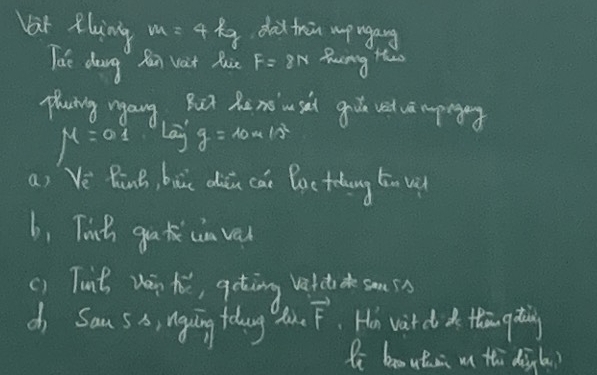 Vật k lượng m = 4 kg, đặt trên mp ngang
Tác dụng lên vật lực F = 8N hướng theo
phương ngang. Biết hệ số m sát giữa vật và mp ngang
μ = 0,1. Lấy g = 10 m/s²
a, Vẽ hình, biểu diễn các lực t dụng lên vật
b, Tính gia tốc của vật
c) Tính vận tốc, q đường vật đi đc sau 5s
d, Sau 5s, ngừng t dụng lực F. Hỏi vật đi đc thêm q đường
là bao nhiêu m thì dừng lại?